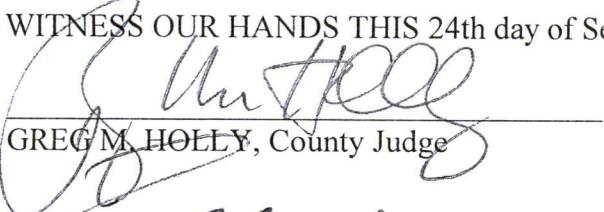 WITNESS OUR HANDS THIS 24th day of Se
GREG M. HOLLY, County Judge